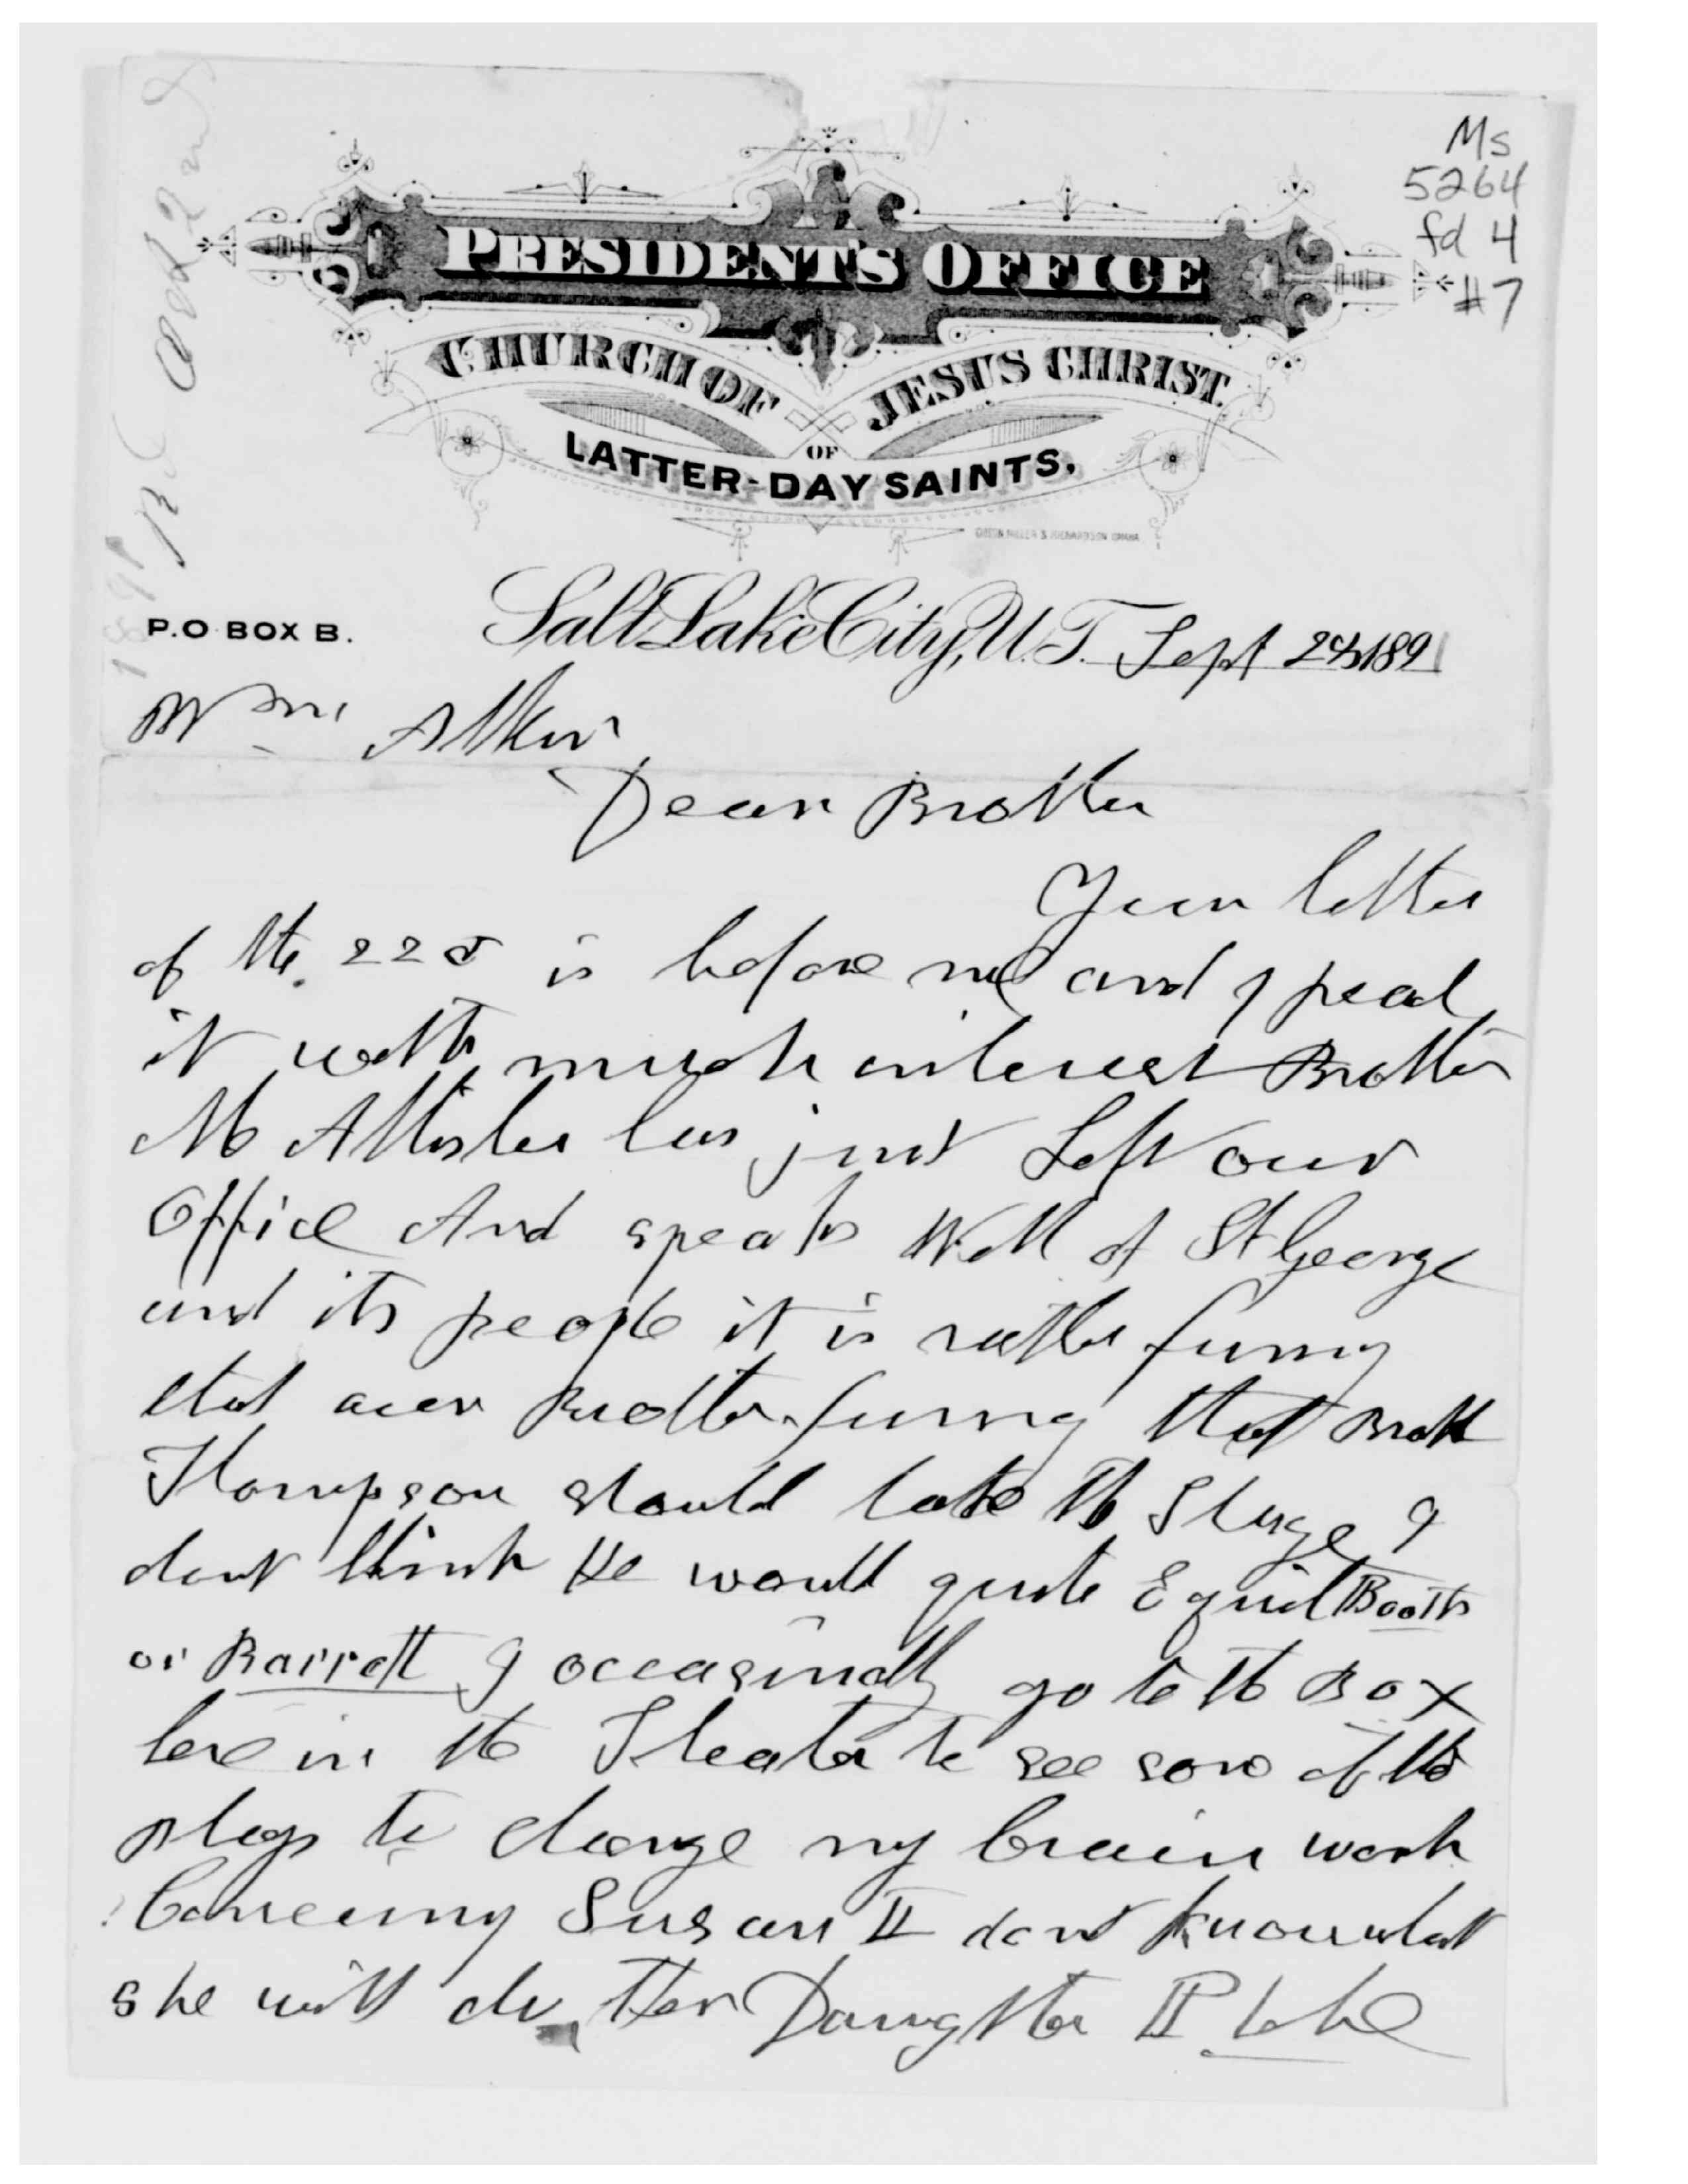 Ms
5264
fd 4
#7
PRESIDENT'S OFFICE
CHURCH OF JESUS CHRIST
OF
LATTER-DAY SAINTS.
P.O BOX B.
Salt Lake City, U.T. Sept 1891
Wm Atkin
Dear Brother
Your letter
of the 22d is before me and I read
it with much interest Brother
McAllister has just Left our
Office And speaks Well of St George
and its people it is rather funny
that our Brother funny that Broth
Thompson should take the Stage I
dont think He would quite Equil Booth
or Barrett I occasinally go to the Box
here in the Theater to see some of the
plays to change my brain work
Concerning Susan I dont know what
she will do Her Daughter